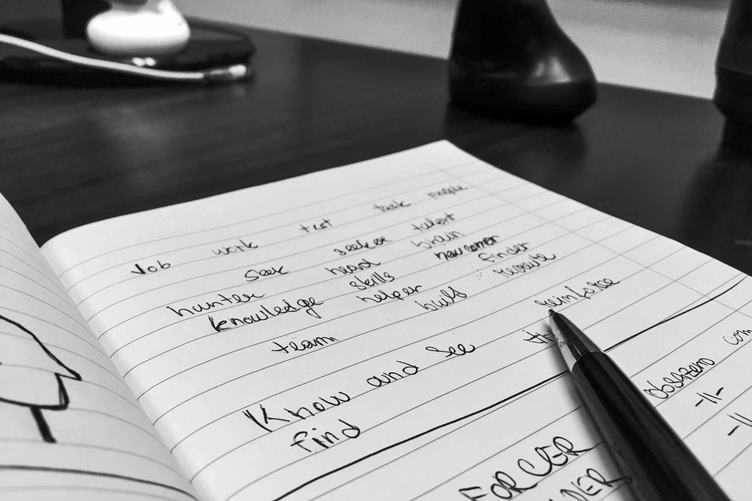 Job work test task people
Seek seeker talent
hunter head brain newcomer
knowledge skills finder
team helper build recruite
Know and See reinforce
find
FORCER